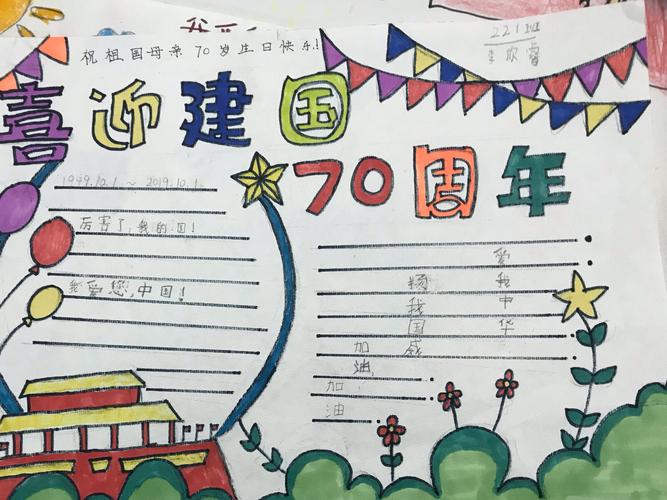 祝祖国母亲70岁生日快乐!
221班
喜迎建国
70周年
1949.10.1 ~ 2019.10.1
厉害了,我的国!
我爱您,中国!
爱我中华
扬我国威
加油
加油